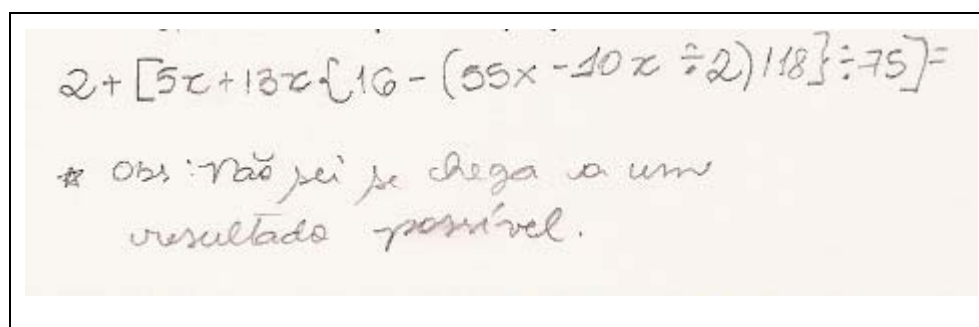 2+[5x+13x{16-(55x-10x÷2)118}÷75]=
* Obs: Não sei se chega a um
resultado possível.